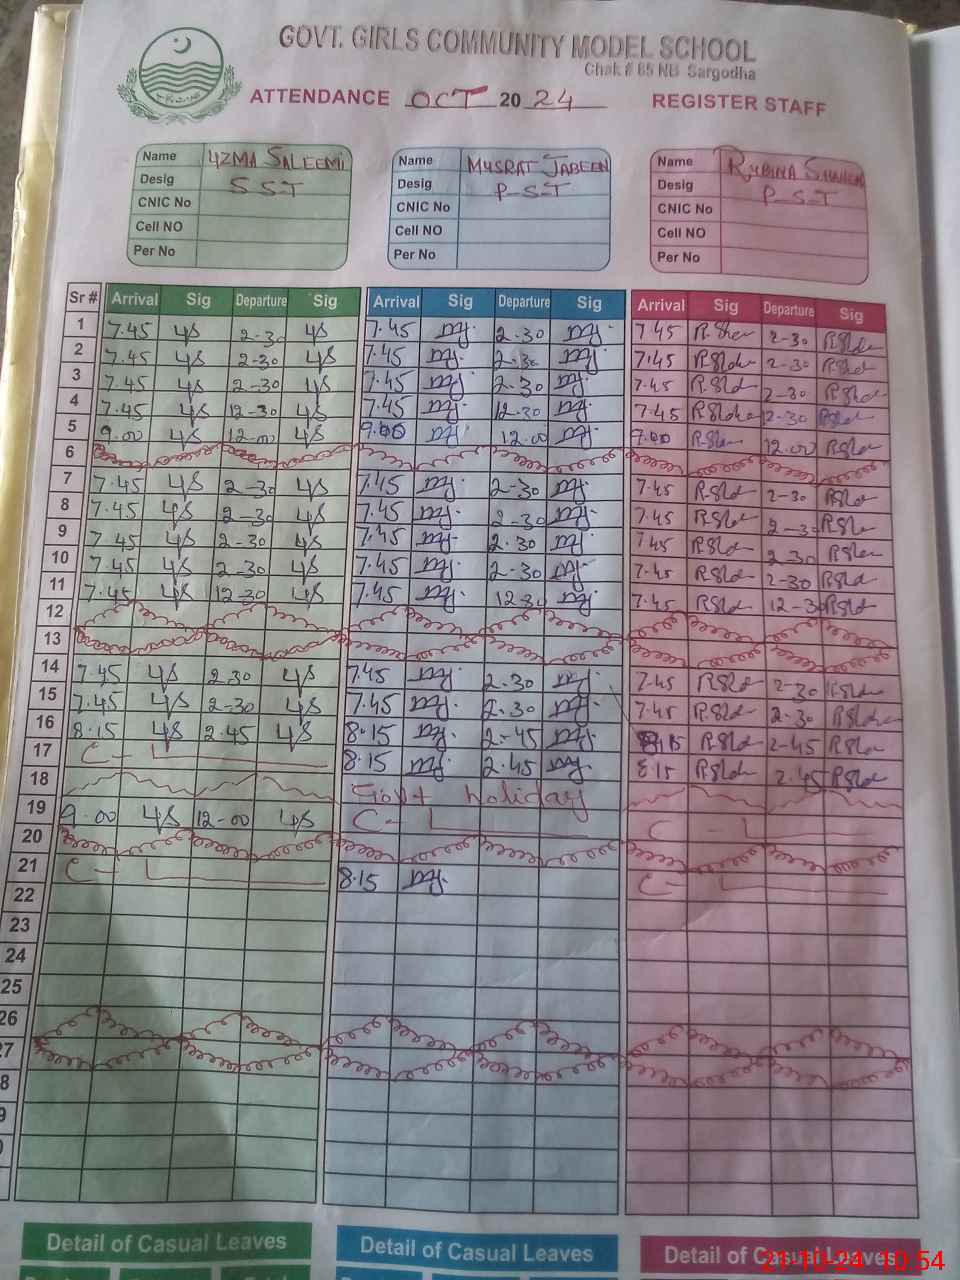 GOVT. GIRLS COMMUNITY MODEL SCHOOL
Chak # 65 NB Sargodha
ATTENDANCE OCT 2024 REGISTER STAFF
Name UZMA SALEEMI Name MUSRAT JABEEN Name RUBINA
Desig S S T Desig P-S-T Desig P-S-T
CNIC No CNIC No CNIC No
Cell NO Cell NO Cell NO
Per No Per No Per No
Sr # Arrival Sig Departure Sig Arrival Sig Departure Sig Arrival Sig Departure Sig
1 7.45 US 2-30 US 7.45 mj. 2-30 mj. 7.45 2-30
2 7.45 US 2-30 US 7.45 mj. 2.30 mj. 7.45 2-30
3 7.45 US 2-30 US 7.45 mj 2.30 mj. 7.45 2-30
4 7.45 US 12-30 US 7.45 mj. 12.30 mj. 7.45 12-30
5 9.00 US 12.00 US 9.00 mj 12.00 mj. 9.00 12.00
6
7 7.45 US 2-30 US 7.45 mj. 2-30 mj. 7.45 2-30
8 7.45 US 2-30 US 7.45 mj. 2-30 mj. 7.45 2-30
9 7.45 US 2-30 US 7.45 mj. 2.30 mj. 7.45 2-30
10 7.45 US 2-30 US 7.45 mj. 2-30 mj. 7.45 2-30
11 7.45 US 12-30 US 7.45 mj. 12-30 mj. 7.45 12-30
12
13
14 7.45 US 2.30 US 7.45 mj. 2.30 mj. 7.45 2-30
15 7.45 US 2-30 US 7.45 mj. 2.30 mj. 7.45 2-30
16 8.15 US 2.45 US 8.15 mj. 2-45 mj. 8.15 2-45
17 C-L 8.15 mj. 2.45 mj. 8.15 2.45
18 Govt holiday
19 9.00 US 12-00 US C-L C-L
20
21 C-L 8.15 mj. C-L
22
23
24
25
26
27
8
9
Detail of Casual Leaves Detail of Casual Leaves Detail of Casual Leaves
21-10-24 10:54